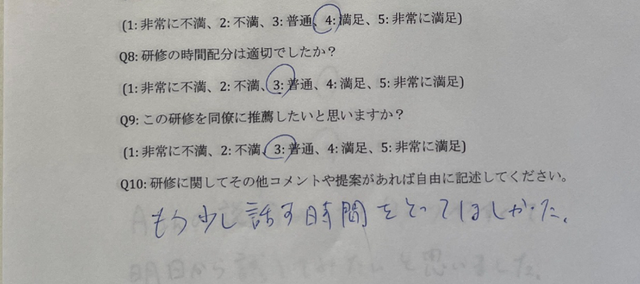 (1: 非常に不満、2: 不満、3: 普通、4: 満足、5: 非常に満足)
Q8: 研修の時間配分は適切でしたか？
(1: 非常に不満、2: 不満、3: 普通、4: 満足、5: 非常に満足)
Q9: この研修を同僚に推薦したいと思いますか？
(1: 非常に不満、2: 不満、3: 普通、4: 満足、5: 非常に満足)
Q10: 研修に関してその他コメントや提案があれば自由に記述してください。
もう少し話す時間をとってほしかった。